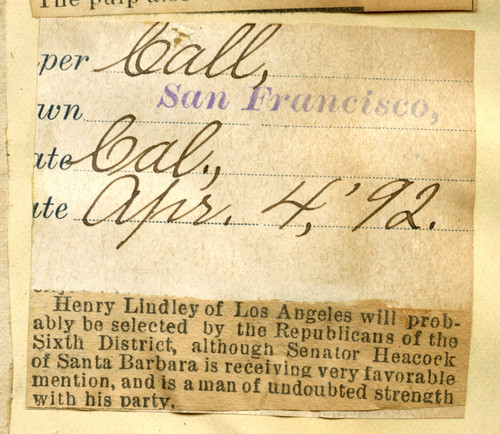 The pulp also
per Call,
wn San Francisco,
ate Cal.,
ate Apr. 4, '92.
Henry Lindley of Los Angeles will prob-
ably be selected by the Republicans of the
Sixth District, although Senator Heacock
of Santa Barbara is receiving very favorable
mention, and is a man of undoubted strength
with his party.